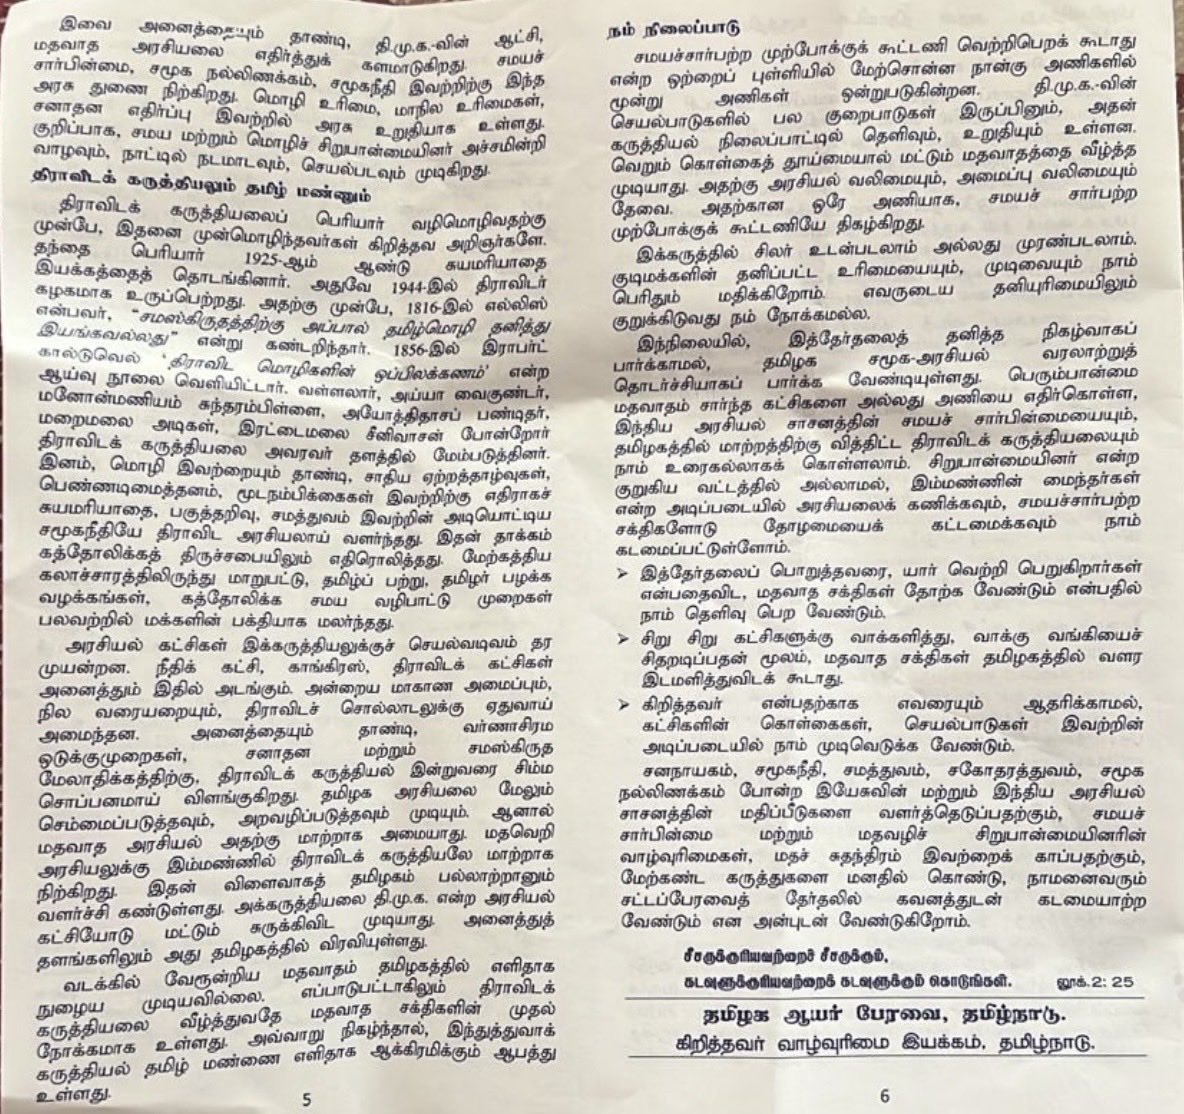 இவை அனைத்தையும் தாண்டி, தி.மு.க.-வின் ஆட்சி,
மதவாத அரசியலை எதிர்த்துக் களமாடுகிறது. சமயச்
சார்பின்மை, சமூக நல்லிணக்கம், சமூகநீதி இவற்றிற்கு இந்த
அரசு துணை நிற்கிறது. மொழி உரிமை, மாநில உரிமைகள்,
சனாதன எதிர்ப்பு இவற்றில் அரசு உறுதியாக உள்ளது.
குறிப்பாக, சமய மற்றும் மொழிச் சிறுபான்மையினர் அச்சமின்றி
வாழவும், நாட்டில் நடமாடவும், செயல்படவும் முடிகிறது.
திராவிடக் கருத்தியலும் தமிழ் மண்ணும்
திராவிடக் கருத்தியலைப் பெரியார் வழிமொழிவதற்கு
முன்பே, இதனை முன்மொழிந்தவர்கள் கிறித்தவ அறிஞர்களே.
தந்தை பெரியார் 1925-ஆம் ஆண்டு சுயமரியாதை
இயக்கத்தைத் தொடங்கினார். அதுவே 1944-இல் திராவிடர்
கழகமாக உருப்பெற்றது. அதற்கு முன்பே, 1816-இல் எல்லிஸ்
என்பவர், “சமஸ்கிருதத்திற்கு அப்பால் தமிழ்மொழி தனித்து
இயங்கவல்லது” என்று கண்டறிந்தார். 1856-இல் இராபர்ட்
கால்டுவெல் ‘திராவிட மொழிகளின் ஒப்பிலக்கணம்’ என்ற
ஆய்வு நூலை வெளியிட்டார். வள்ளலார், அய்யா வைகுண்டர்,
மனோன்மணியம் சுந்தரம்பிள்ளை, அயோத்திதாசப் பண்டிதர்,
மறைமலை அடிகள், இரட்டைமலை சீனிவாசன் போன்றோர்
திராவிடக் கருத்தியலை அவரவர் தளத்தில் மேம்படுத்தினர்.
இனம், மொழி இவற்றையும் தாண்டி, சாதிய ஏற்றத்தாழ்வுகள்,
பெண்ணடிமைத்தனம், மூடநம்பிக்கைகள் இவற்றிற்கு எதிராகச்
சுயமரியாதை, பகுத்தறிவு, சமத்துவம் இவற்றின் அடியொட்டிய
சமூகநீதியே திராவிட அரசியலாய் வளர்ந்தது. இதன் தாக்கம்
கத்தோலிக்கத் திருச்சபையிலும் எதிரொலித்தது. மேற்கத்திய
கலாச்சாரத்திலிருந்து மாறுபட்டு, தமிழ்ப் பற்று, தமிழர் பழக்க
வழக்கங்கள், கத்தோலிக்க சமய வழிபாட்டு முறைகள்
பலவற்றில் மக்களின் பக்தியாக மலர்ந்தது.
அரசியல் கட்சிகள் இக்கருத்தியலுக்குச் செயல்வடிவம் தர
முயன்றன. நீதிக் கட்சி, காங்கிரஸ், திராவிடக் கட்சிகள்
அனைத்தும் இதில் அடங்கும். அன்றைய மாகாண அமைப்பும்,
நில வரையறையும், திராவிடச் சொல்லாடலுக்கு ஏதுவாய்
அமைந்தன. அனைத்தையும் தாண்டி, வர்ணாசிரம
ஒடுக்குமுறைகள், சனாதன மற்றும் சமஸ்கிருத
மேலாதிக்கத்திற்கு, திராவிடக் கருத்தியல் இன்றுவரை சிம்ம
சொப்பனமாய் விளங்குகிறது. தமிழக அரசியலை மேலும்
செம்மைப்படுத்தவும், அறவழிப்படுத்தவும் முடியும். ஆனால்
மதவாத அரசியல் அதற்கு மாற்றாக அமையாது. மதவெறி
அரசியலுக்கு இம்மண்ணில் திராவிடக் கருத்தியலே மாற்றாக
நிற்கிறது. இதன் விளைவாகத் தமிழகம் பல்லாற்றானும்
வளர்ச்சி கண்டுள்ளது. அக்கருத்தியலை தி.மு.க. என்ற அரசியல்
கட்சியோடு மட்டும் சுருக்கிவிட முடியாது. அனைத்துத்
தளங்களிலும் அது தமிழகத்தில் விரவியுள்ளது.
வடக்கில் வேரூன்றிய மதவாதம் தமிழகத்தில் எளிதாக
நுழைய முடியவில்லை. எப்பாடுபட்டாகிலும் திராவிடக்
கருத்தியலை வீழ்த்துவதே மதவாத சக்திகளின் முதல்
நோக்கமாக உள்ளது. அவ்வாறு நிகழ்ந்தால், இந்துத்துவாக்
கருத்தியல் தமிழ் மண்ணை எளிதாக ஆக்கிரமிக்கும் ஆபத்து
உள்ளது.
5
நம் நிலைப்பாடு
சமயச்சார்பற்ற முற்போக்குக் கூட்டணி வெற்றிபெறக் கூடாது
என்ற ஒற்றைப் புள்ளியில் மேற்சொன்ன நான்கு அணிகளில்
மூன்று அணிகள் ஒன்றுபடுகின்றன. தி.மு.க.-வின்
செயல்பாடுகளில் பல குறைபாடுகள் இருப்பினும், அதன்
கருத்தியல் நிலைப்பாட்டில் தெளிவும், உறுதியும் உள்ளன.
வெறும் கொள்கைத் தூய்மையால் மட்டும் மதவாதத்தை வீழ்த்த
முடியாது. அதற்கு அரசியல் வலிமையும், அமைப்பு வலிமையும்
தேவை. அதற்கான ஒரே அணியாக, சமயச் சார்பற்ற
முற்போக்குக் கூட்டணியே திகழ்கிறது.
இக்கருத்தில் சிலர் உடன்படலாம் அல்லது முரண்படலாம்.
குடிமக்களின் தனிப்பட்ட உரிமையையும், முடிவையும் நாம்
பெரிதும் மதிக்கிறோம். எவருடைய தனியுரிமையிலும்
குறுக்கிடுவது நம் நோக்கமல்ல.
இந்நிலையில், இத்தேர்தலைத் தனித்த நிகழ்வாகப்
பார்க்காமல், தமிழக சமூக-அரசியல் வரலாற்றுத்
தொடர்ச்சியாகப் பார்க்க வேண்டியுள்ளது. பெரும்பான்மை
மதவாதம் சார்ந்த கட்சிகளை அல்லது அணியை எதிர்கொள்ள,
இந்திய அரசியல் சாசனத்தின் சமயச் சார்பின்மையையும்,
தமிழகத்தில் மாற்றத்திற்கு வித்திட்ட திராவிடக் கருத்தியலையும்
நாம் உரைகல்லாகக் கொள்ளலாம். சிறுபான்மையினர் என்ற
குறுகிய வட்டத்தில் அல்லாமல், இம்மண்ணின் மைந்தர்கள்
என்ற அடிப்படையில் அரசியலைக் கணிக்கவும், சமயச்சார்பற்ற
சக்திகளோடு தோழமையைக் கட்டமைக்கவும் நாம்
கடமைப்பட்டுள்ளோம்.
➢ இத்தேர்தலைப் பொறுத்தவரை, யார் வெற்றி பெறுகிறார்கள்
என்பதைவிட, மதவாத சக்திகள் தோற்க வேண்டும் என்பதில்
நாம் தெளிவு பெற வேண்டும்.
➢ சிறு சிறு கட்சிகளுக்கு வாக்களித்து, வாக்கு வங்கியைச்
சிதறடிப்பதன் மூலம், மதவாத சக்திகள் தமிழகத்தில் வளர
இடமளித்துவிடக் கூடாது.
➢ கிறித்தவர் என்பதற்காக எவரையும் ஆதரிக்காமல்,
கட்சிகளின் கொள்கைகள், செயல்பாடுகள் இவற்றின்
அடிப்படையில் நாம் முடிவெடுக்க வேண்டும்.
சனநாயகம், சமூகநீதி, சமத்துவம், சகோதரத்துவம், சமூக
நல்லிணக்கம் போன்ற இயேசுவின் மற்றும் இந்திய அரசியல்
சாசனத்தின் மதிப்பீடுகளை வளர்த்தெடுப்பதற்கும், சமயச்
சார்பின்மை மற்றும் மதவழிச் சிறுபான்மையினரின்
வாழ்வுரிமைகள், மதச் சுதந்திரம் இவற்றைக் காப்பதற்கும்,
மேற்கண்ட கருத்துகளை மனதில் கொண்டு, நாமனைவரும்
சட்டப்பேரவைத் தேர்தலில் கவனத்துடன் கடமையாற்ற
வேண்டும் என அன்புடன் வேண்டுகிறோம்.
சீசருக்குரியவற்றைச் சீசருக்கும்,
கடவுளுக்குரியவற்றைக் கடவுளுக்கும் கொடுங்கள். லூக்.2: 25
தமிழக ஆயர் பேரவை, தமிழ்நாடு.
கிறித்தவர் வாழ்வுரிமை இயக்கம், தமிழ்நாடு.
6